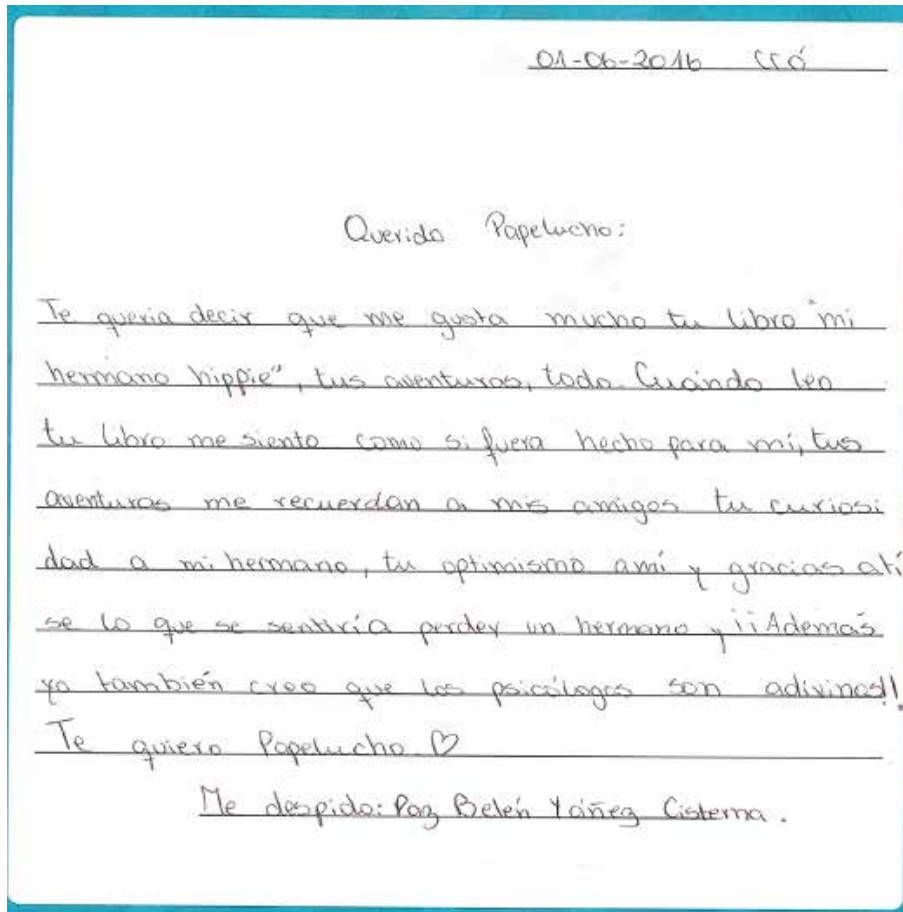 01-06-2016 CCÓ
Querido Papelucho:
Te queria decir que me gusta mucho tu libro "mi
hermano hippie", tus aventuras, todo. Cuándo leo
tu libro me siento como si fuera hecho para mí, tus
aventuras me recuerdan a mis amigos tu curiosi
dad a mi hermano, tu optimismo amí y gracias atí
se lo que se sentiría perder un hermano y ¡¡Además
yo también creo que los psicólogos son adivinos!!
Te quiero Papelucho ♡
Me despido: Paz Belén Yáñez Cisterna.